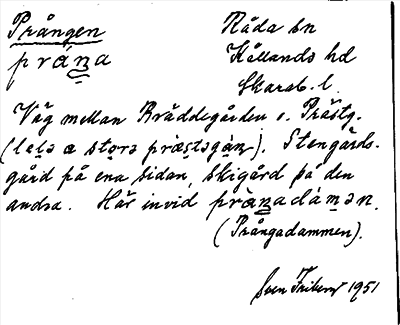 Prången
pråŋa
Råda sn
Kållands hd
Skarab. l.
Väg mellan Bräddegården o. Prästg.
(lela a stora prästagån). Stengärds-
gård på ena sidan, skigård på den
andra. Här invid pråŋadámən.
(Prångadammen).
Sven 1951